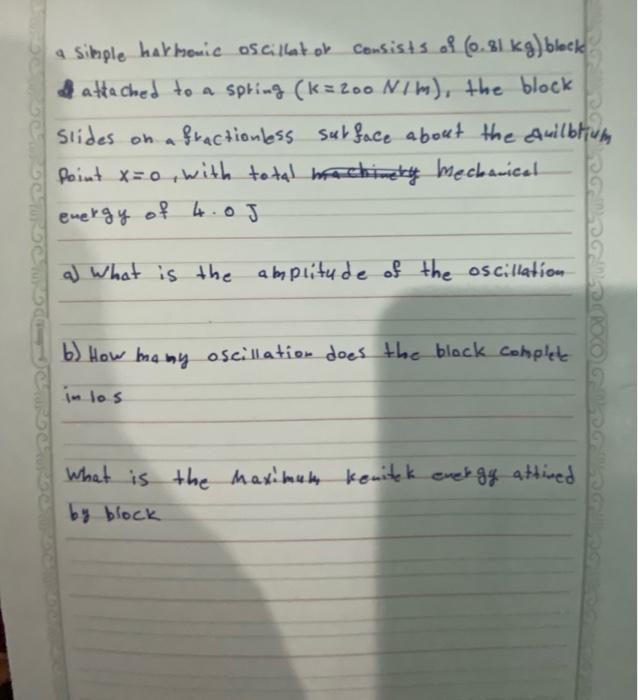 a simple harmonic oscillator consists of (0.81 kg) block
attached to a spring (k=200 N/m), the block
Slides on a fractionless surface about the equilbrium
Point x=0, with total machinery mechanical
energy of 4.0 J
a) What is the amplitude of the oscillation
b) How many oscillation does the block complete
in 10 s
What is the Maximum kenitek energy attined
by block